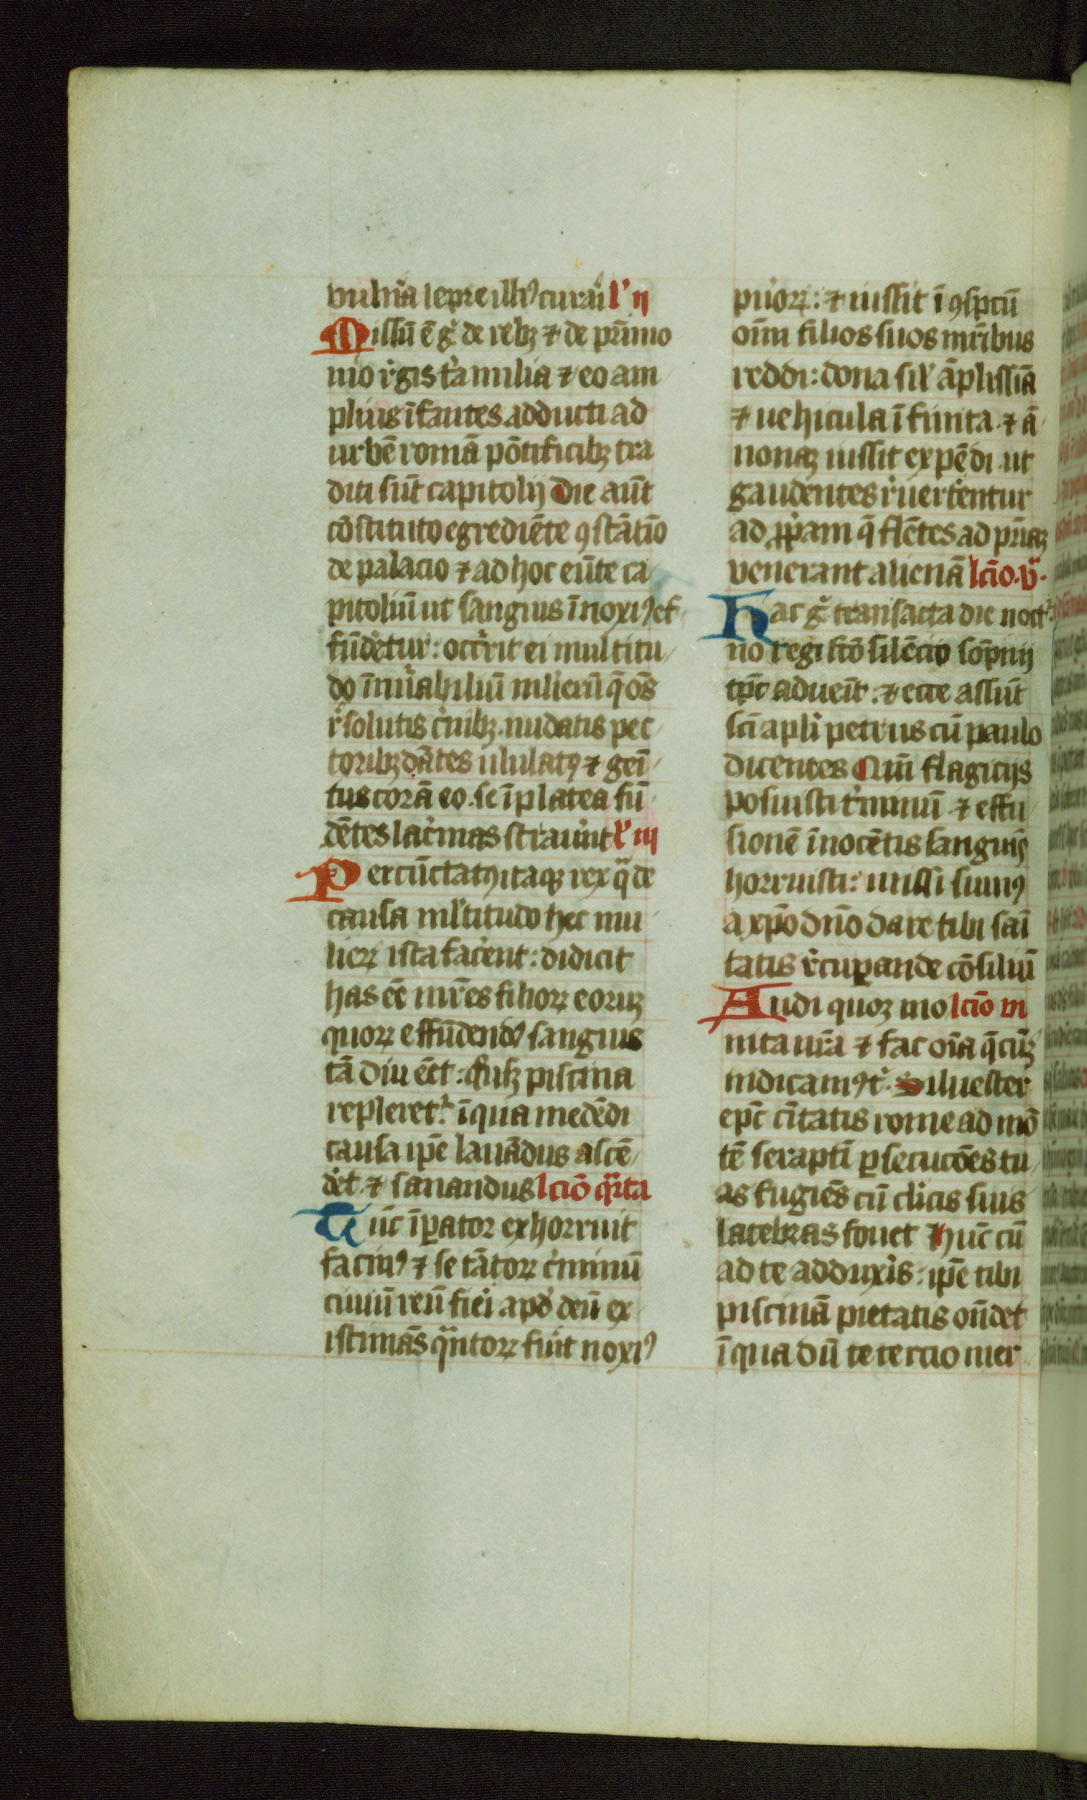 vulnā lepre illꝰ curaī lꝰ ij
Missū ē gͦ de rebꝫ ⁊ de prīmo
nio rͤgis familia ⁊ eo am
plius īfantes adducti ad
urbē romā pōtificibꝫ tra
diti sūt capitolij Die aūt
cōstituto egrediēte ꝯstātīo
de palacio ⁊ ad hoc eūte ca
pitoliū ut sanguis īnoxiꝰ ef
fūdͤetur: occͬrit ei multitu
do īnūabiliū mlieꝝ q̄ oēs
rͤsolutis cͥnibꝫ nudatis pec
toribꝫ dātes ululatꝰ ⁊ gemī
tus corā eo. se ī platea fū
dētes lacͥmas strauͤnt lꝰ iij
Percūctatꝰ itaqꝫ rex qͣ de
causa mltitudo hec mu
lieꝝ ista facͤent: didicit
has eē mr̄es filioꝝ eoruꝫ
quoꝝ effūdendꝰ sanguis
tā diu eēt: qͦusqꝫ piscina
repleretͬ: ī qua medēdi
causa ip̄e lauādus ascē
dͤet ⁊ sanandus lcīo qͣrta
Tūc īꝑator exhorruit
facinꝰ ⁊ se tātoꝝ cͥminū
ciuiū reū fieͥi apd̓ deū ex
istimās qͣntoꝝ fuͤit noxiꝰ
pueroꝝ: ⁊ iussit ī ꝯsp̄ctū
oīm filios suos mr̄ibus
reddi: dona silͥ āplissīa
⁊ uehicula ī finita ⁊ ā
nonaꝫ iussit expēdi ut
gaudentes rͤuertͤentur
ad ꝓpͥam q̄ flētes ad pͬiaꝫ
venerant alienā lcīo. vͣ.
Hac gͦ transacta die noctͬ
no regi fcō silēcio sōpnij
tp̄c aduenīt: ⁊ ecce assūt
sc̄i apl̄i petrus cū paulo
dicentes Qm̄ flagicijs
posuisti tͤminū ⁊ effu
sionē īnocētis sanguīs
horruisti: missi sumꝰ
a xp̄o dn̄o dare tibi saī
tatis rͤcuꝑande cōsiliū
Audi quoꝫ mo lcīo vi
nita nr̄a ⁊ fac oīa q̄cūꝫ
indicamꝰ tͥ. Siluester
ep̄c cīitatis rome ad mō
tē seraptī ꝑsecucōes tu
as fugiēs cū clīcis suis
latebras fouet Hūc cū
ad te adduxͤis: ip̄e tibi
piscinā pietatis on̄det
ī qua dū te tercio mer